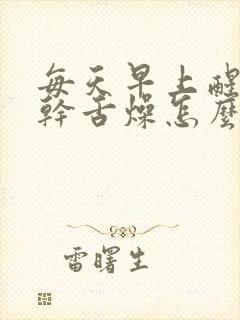 每天早上醒
幹舌燥怎麼
雷曙生